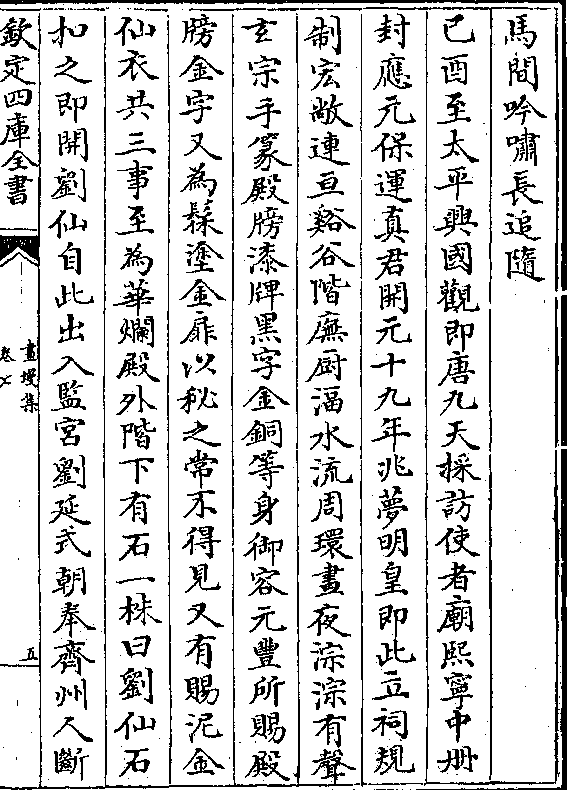 馬間吟嘯長追隨
己酉至太平興國觀即唐九天採訪使者廟熙寧中册
封應元保運真君開元十九年兆夢明皇即此立祠規
制宏敞連亘谿谷階廡厨湢水流周環晝夜淙淙有聲
玄宗手篆殿牓漆牌黑字金銅等身御容元豐所賜殿
牓金字又為髹塗金扉以秘之常不得見又有賜泥金
仙衣共三事至為華爛殿外階下有石一株曰劉仙石
扣之即開劉仙自此出入監宮劉延式朝奉齊州人斷
欽定四庫全書
畫墁集
卷七
五